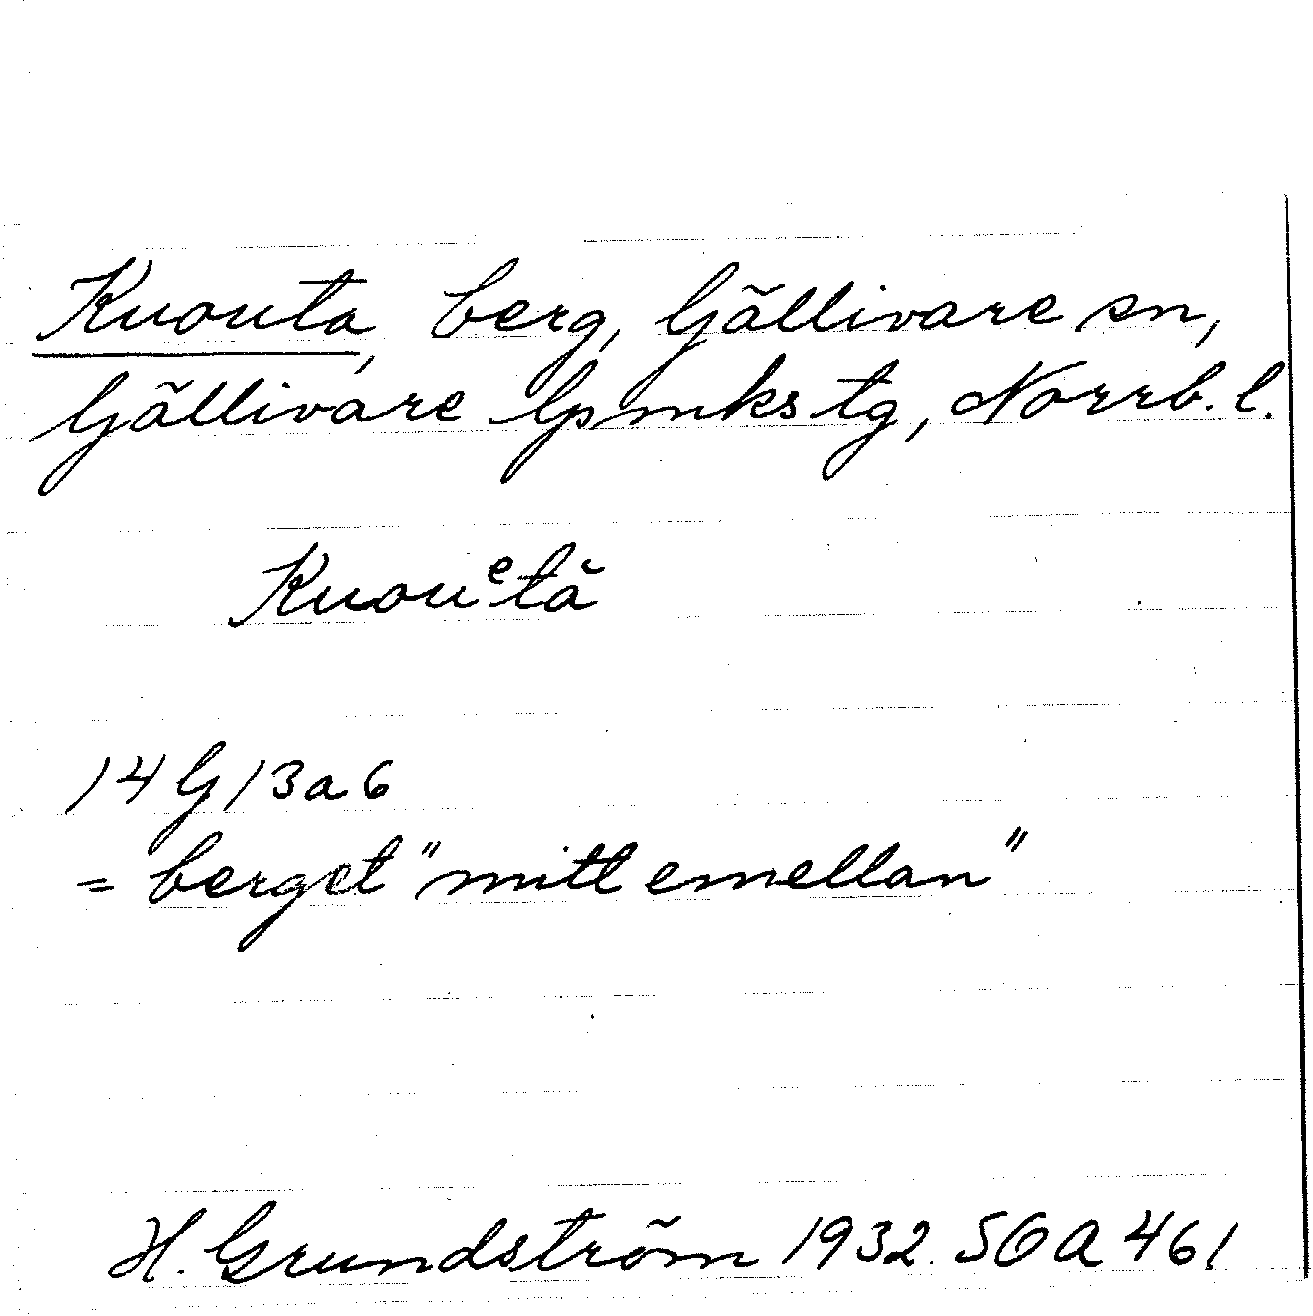 Kuouta, berg, Gällivare sn,
Gällivare lpmks tg, Norrb. l.
Kuouᵉtă
14 G 13 a 6
= berget "mitt emellan"
H. Grundström 1932. SOA 461